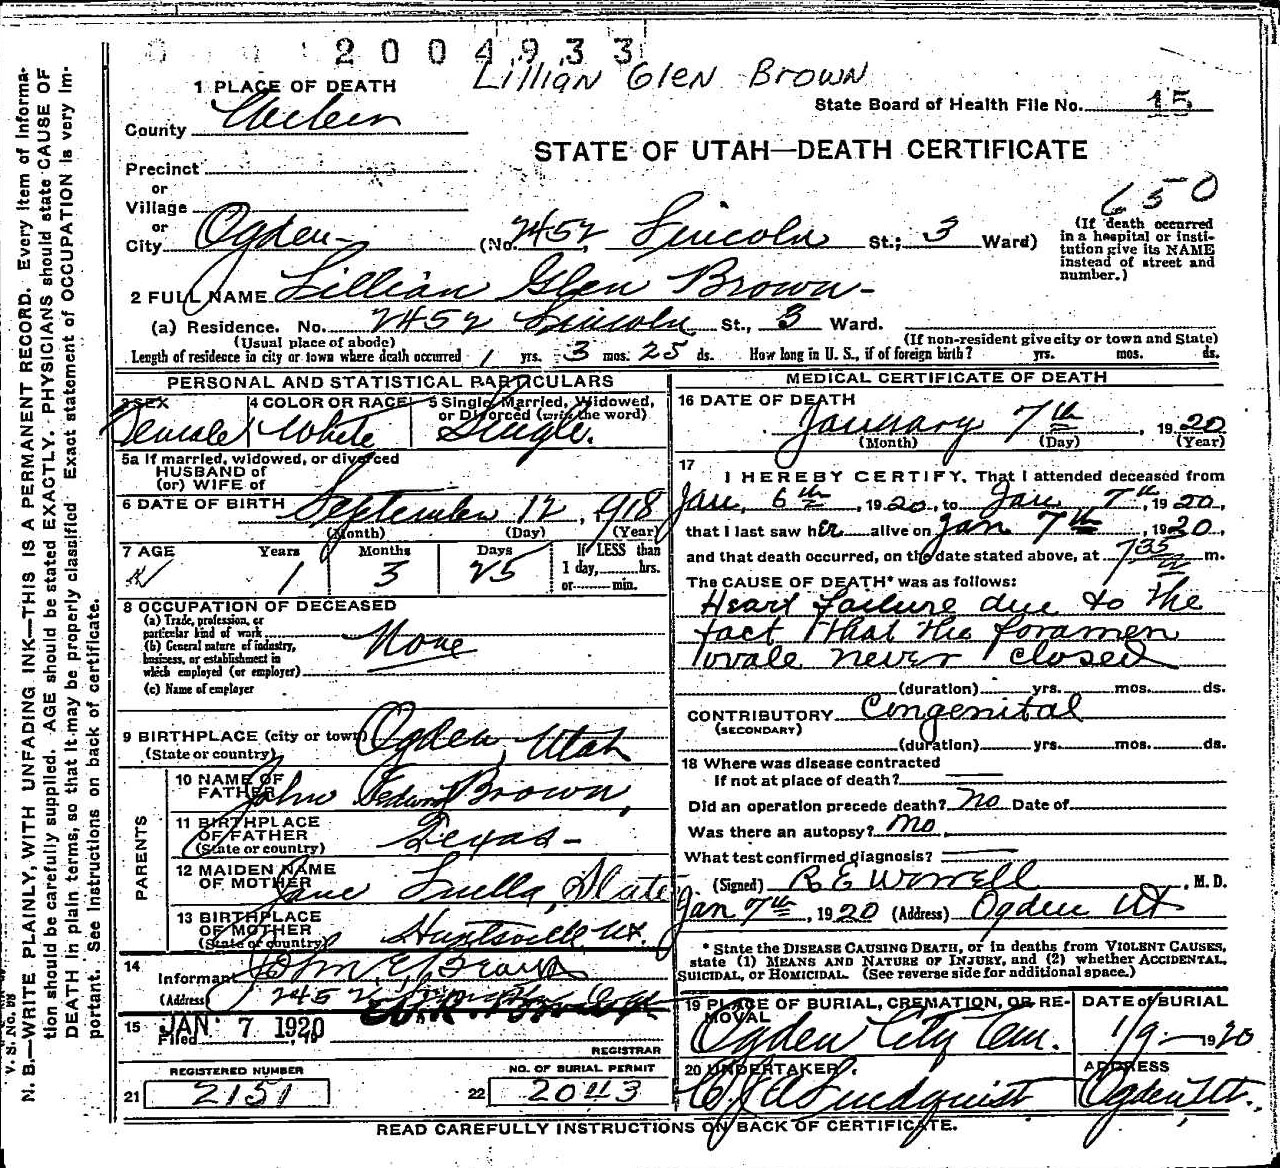 2004933
Lillian Glen Brown
1 PLACE OF DEATH
State Board of Health File No. 15
County
STATE OF UTAH—DEATH CERTIFICATE
Precinct
or
Village
or
650
(If death occurred in a hospital or institution give its NAME instead of street and number.)
City Ogden (No. 2452 Lincoln St.; 3 Ward)
2 FULL NAME Lillian Glen Brown
(a) Residence. No. 2452 Lincoln St., 3 Ward.
(Usual place of abode) (If non-resident give city or town and State)
Length of residence in city or town where death occurred 1 yrs. 3 mos. 25 ds. How long in U. S., if of foreign birth? yrs. mos. ds.
PERSONAL AND STATISTICAL PARTICULARS
3 SEX 4 COLOR OR RACE 5 Single, Married, Widowed, or Divorced (write the word)
Female White Single.
5a If married, widowed, or divorced
HUSBAND of
(or) WIFE of
6 DATE OF BIRTH September 12, 1918
(Month) (Day) (Year)
7 AGE Years Months Days If LESS than
1 3 25 1 day, hrs.
or min.
8 OCCUPATION OF DECEASED
(a) Trade, profession, or
particular kind of work
(b) General nature of industry,
business, or establishment in
which employed (or employer) None
(c) Name of employer
9 BIRTHPLACE (city or town) Ogden, Utah
(State or country)
PARENTS
10 NAME OF FATHER John Edwin Brown,
11 BIRTHPLACE OF FATHER (State or country) Texas
12 MAIDEN NAME OF MOTHER Jane Luella Slater
13 BIRTHPLACE OF MOTHER (State or country) Huntsville Ut.
14 Informant John E. Brown
(Address) 2452
15 Filed JAN 7 1920, 19
REGISTRAR
REGISTERED NUMBER NO. OF BURIAL PERMIT
21 2151 22 2043
MEDICAL CERTIFICATE OF DEATH
16 DATE OF DEATH
January 7th, 1920
(Month) (Day) (Year)
17 I HEREBY CERTIFY, That I attended deceased from
Jan, 6th, 1920, to Jan 7th, 1920,
that I last saw her alive on Jan 7th, 1920,
and that death occurred, on the date stated above, at 735 m.
The CAUSE OF DEATH* was as follows:
Heart failure due to the
fact that the foramen
ovale never closed
(duration) yrs. mos. ds.
CONTRIBUTORY Congenital
(SECONDARY)
(duration) yrs. mos. ds.
18 Where was disease contracted
If not at place of death?
Did an operation precede death? No Date of
Was there an autopsy? No
What test confirmed diagnosis?
(Signed) R E Worrell, M. D.
Jan 7th, 1920 (Address) Ogden Ut
* State the DISEASE CAUSING DEATH, or in deaths from VIOLENT CAUSES,
state (1) MEANS AND NATURE OF INJURY, and (2) whether ACCIDENTAL,
SUICIDAL, or HOMICIDAL. (See reverse side for additional space.)
19 PLACE OF BURIAL, CREMATION, OR REMOVAL DATE of BURIAL
Ogden City Cem. 1/9 1920
20 UNDERTAKER ADDRESS
Lindquist Ogden, Ut.
READ CAREFULLY INSTRUCTIONS ON BACK OF CERTIFICATE.
V. S. No. 
N. B.—WRITE PLAINLY, WITH UNFADING INK—THIS IS A PERMANENT RECORD. Every item of Informa-
tion should be carefully supplied. AGE should be stated EXACTLY. PHYSICIANS should state CAUSE OF
DEATH in plain terms, so that it may be properly classified Exact statement of OCCUPATION is very im-
portant. See Instructions on back of certificate.